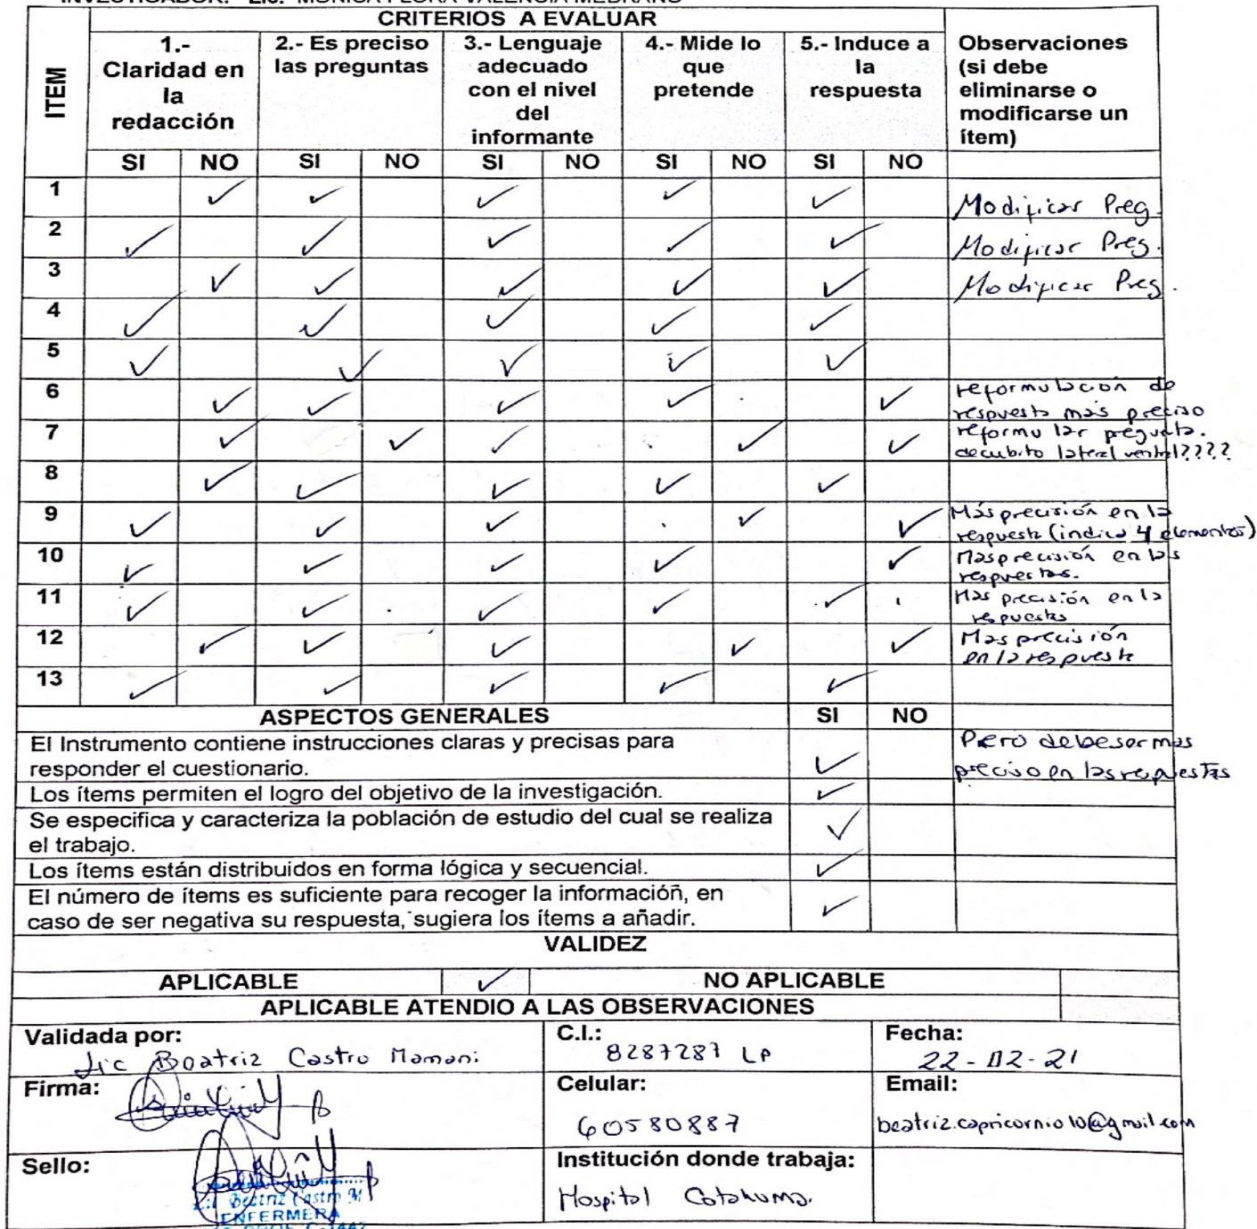 INVESTIGADOR: Lic. MONICA FLORA VALENCIA MEDRANO
CRITERIOS A EVALUAR
ITEM
1.- Claridad en la redacción
2.- Es preciso las preguntas
3.- Lenguaje adecuado con el nivel del informante
4.- Mide lo que pretende
5.- Induce a la respuesta
Observaciones (si debe eliminarse o modificarse un ítem)
SI NO SI NO SI NO SI NO SI NO
1 ✓ ✓ ✓ ✓ ✓ Modificar Preg.
2 ✓ ✓ ✓ ✓ ✓ Modificar Preg.
3 ✓ ✓ ✓ ✓ ✓ Modificar Preg.
4 ✓ ✓ ✓ ✓ ✓
5 ✓ ✓ ✓ ✓ ✓
6 ✓ ✓ ✓ ✓ ✓ reformulación de
respuesta mas preciso
7 ✓ ✓ ✓ ✓ ✓ reformular pregunta.
decubito lateral ventral????
8 ✓ ✓ ✓ ✓ ✓
9 ✓ ✓ ✓ ✓ ✓ Más precisión en la
respuesta (indica 4 elementos)
10 ✓ ✓ ✓ ✓ ✓ Mas precisión en las
respuestas.
11 ✓ ✓ ✓ ✓ ✓ Mas precisión en la
respuestas
12 ✓ ✓ ✓ ✓ ✓ Mas precisión
en la respuesta
13 ✓ ✓ ✓ ✓ ✓
ASPECTOS GENERALES SI NO
El Instrumento contiene instrucciones claras y precisas para
responder el cuestionario. ✓
Pero debe ser mas
preciso en las respuestas
Los ítems permiten el logro del objetivo de la investigación. ✓
Se especifica y caracteriza la población de estudio del cual se realiza
el trabajo. ✓
Los ítems están distribuidos en forma lógica y secuencial. ✓
El número de ítems es suficiente para recoger la información, en
caso de ser negativa su respuesta, sugiera los ítems a añadir. ✓
VALIDEZ
APLICABLE ✓ NO APLICABLE
APLICABLE ATENDIO A LAS OBSERVACIONES
Validada por: C.I.: Fecha:
Lic Beatriz Castro Mamani 8287287 LP 22-02-21
Firma: Celular: Email:
60580887 beatriz.capricornio10@gmail.com
Sello: Institución donde trabaja:
Hospital Cotahuma.
Lic. Beatriz Castro M
ENFERMERA